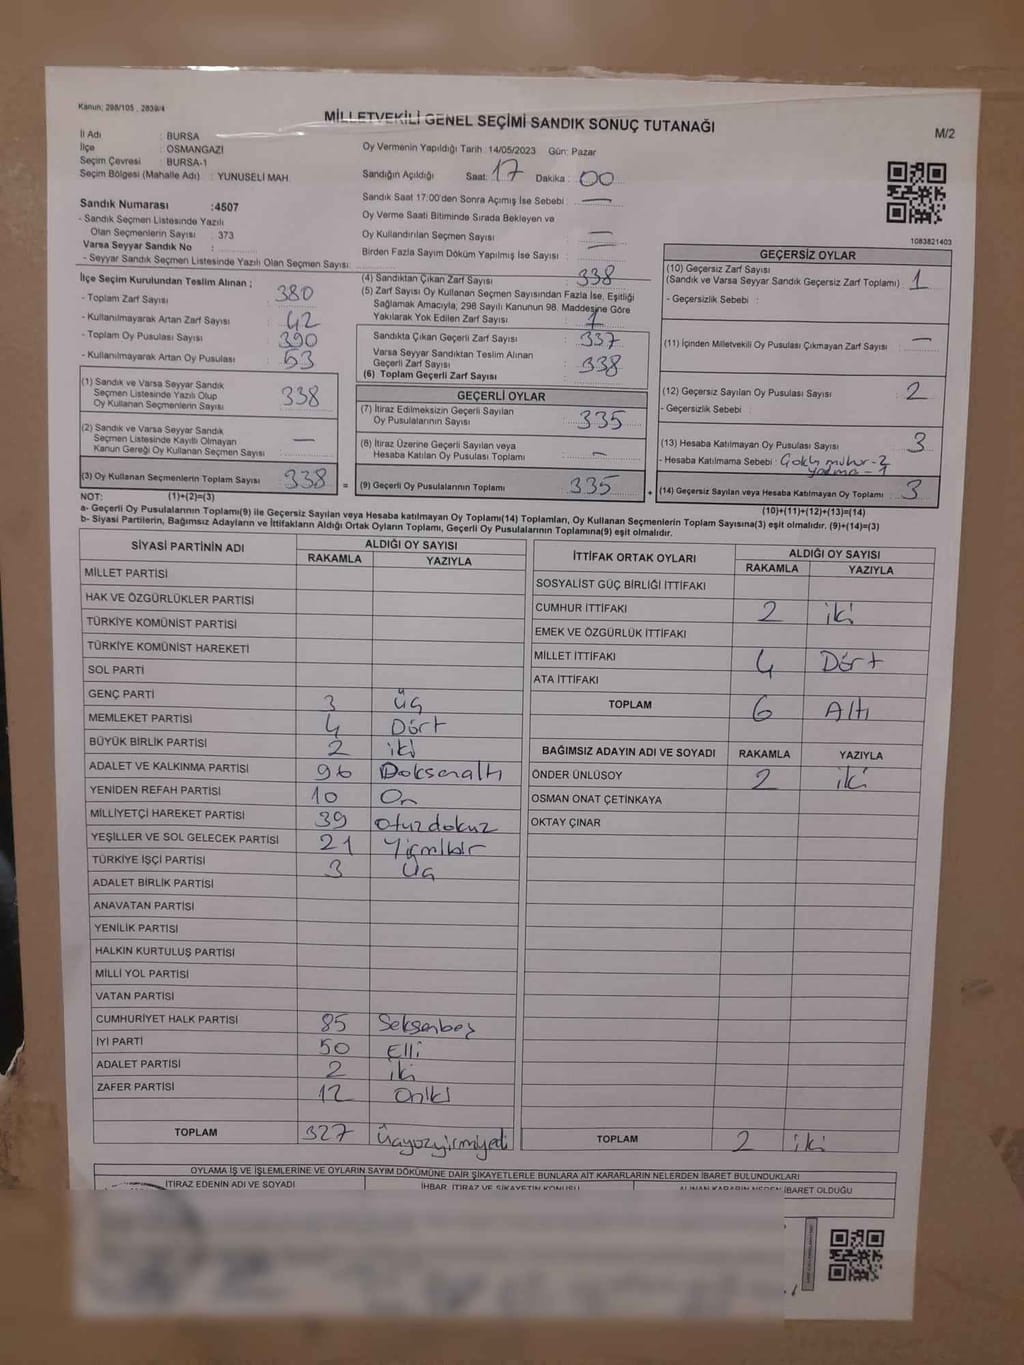 Kanun; 298/105 , 2839/4
MİLLETVEKİLİ GENEL SEÇİMİ SANDIK SONUÇ TUTANAĞI
M/2
İl Adı : BURSA
İlçe : OSMANGAZİ
Seçim Çevresi : BURSA-1
Seçim Bölgesi (Mahalle Adı) : YUNUSELİ MAH.
Oy Vermenin Yapıldığı Tarih : 14/05/2023 Gün: Pazar
Sandığın Açıldığı Saat: 17 Dakika : 00
Sandık Saat 17:00'den Sonra Açımış İse Sebebi : —
Oy Verme Saati Bitiminde Sırada Bekleyen ve
Oy Kullandırılan Seçmen Sayısı : —
Birden Fazla Sayım Döküm Yapılmış İse Sayısı : —
Sandık Numarası :4507
- Sandık Seçmen Listesinde Yazılı
Olan Seçmenlerin Sayısı : 373
Varsa Seyyar Sandık No :
- Seyyar Sandık Seçmen Listesinde Yazılı Olan Seçmen Sayısı:
1083821403
İlçe Seçim Kurulundan Teslim Alınan ;
- Toplam Zarf Sayısı : 380
- Kullanılmayarak Artan Zarf Sayısı : 42
- Toplam Oy Pusulası Sayısı : 390
- Kullanılmayarak Artan Oy Pusulası : 53
(1) Sandık ve Varsa Seyyar Sandık
Seçmen Listesinde Yazılı Olup
Oy Kullanan Seçmenlerin Sayısı : 338
(2) Sandık ve Varsa Seyyar Sandık
Seçmen Listesinde Kayıtlı Olmayan
Kanun Gereği Oy Kullanan Seçmen Sayısı : —
(3) Oy Kullanan Seçmenlerin Toplam Sayısı : 338 =
(4) Sandıktan Çıkan Zarf Sayısı : 338
(5) Zarf Sayısı Oy Kullanan Seçmen Sayısından Fazla İse, Eşitliği
Sağlamak Amacıyla, 298 Sayılı Kanunun 98. Maddesine Göre
Yakılarak Yok Edilen Zarf Sayısı : 1
Sandıkta Çıkan Geçerli Zarf Sayısı : 337
Varsa Seyyar Sandıktan Teslim Alınan
Geçerli Zarf Sayısı : 338
(6) Toplam Geçerli Zarf Sayısı
GEÇERLİ OYLAR
(7) İtiraz Edilmeksizin Geçerli Sayılan
Oy Pusulalarının Sayısı : 335
(8) İtiraz Üzerine Geçerli Sayılan veya
Hesaba Katılan Oy Pusulası Toplamı : —
(9) Geçerli Oy Pusulalarının Toplamı : 335 +
GEÇERSİZ OYLAR
(10) Geçersiz Zarf Sayısı
(Sandık ve Varsa Seyyar Sandık Geçersiz Zarf Toplamı) : 1
- Geçersizlik Sebebi :
(11) İçinden Milletvekili Oy Pusulası Çıkmayan Zarf Sayısı : —
(12) Geçersiz Sayılan Oy Pusulası Sayısı : 2
- Geçersizlik Sebebi :
(13) Hesaba Katılmayan Oy Pusulası Sayısı : 3
- Hesaba Katılmama Sebebi :
(14) Geçersiz Sayılan veya Hesaba Katılmayan Oy Toplamı : 3
NOT: (1)+(2)=(3) (10)+(11)+(12)+(13)=(14)
a- Geçerli Oy Pusulalarının Toplamı(9) ile Geçersiz Sayılan veya Hesaba katılmayan Oy Toplamı(14) Toplamları, Oy Kullanan Seçmenlerin Toplam Sayısına(3) eşit olmalıdır. (9)+(14)=(3)
b- Siyasi Partilerin, Bağımsız Adayların ve İttifakların Aldığı Ortak Oyların Toplamı, Geçerli Oy Pusulalarının Toplamına(9) eşit olmalıdır.
SİYASİ PARTİNİN ADI ALDIĞI OY SAYISI
RAKAMLA YAZIYLA
MİLLET PARTİSİ
HAK VE ÖZGÜRLÜKLER PARTİSİ
TÜRKİYE KOMÜNİST PARTİSİ
TÜRKİYE KOMÜNİST HAREKETİ
SOL PARTİ
GENÇ PARTİ 3 Üç
MEMLEKET PARTİSİ 4 Dört
BÜYÜK BİRLİK PARTİSİ 2 iki
ADALET VE KALKINMA PARTİSİ 96 Doksanaltı
YENİDEN REFAH PARTİSİ 10 On
MİLLİYETÇİ HAREKET PARTİSİ 39 otuzdokuz
YEŞİLLER VE SOL GELECEK PARTİSİ 21 Yirmibir
TÜRKİYE İŞÇİ PARTİSİ 3 Üç
ADALET BİRLİK PARTİSİ
ANAVATAN PARTİSİ
YENİLİK PARTİSİ
HALKIN KURTULUŞ PARTİSİ
MİLLİ YOL PARTİSİ
VATAN PARTİSİ
CUMHURİYET HALK PARTİSİ 85 Seksenbeş
İYİ PARTİ 50 Elli
ADALET PARTİSİ 2 iki
ZAFER PARTİSİ 12 Oniki
TOPLAM 327 Üçyüzyirmiyedi
İTTİFAK ORTAK OYLARI ALDIĞI OY SAYISI
RAKAMLA YAZIYLA
SOSYALİST GÜÇ BİRLİĞİ İTTİFAKI
CUMHUR İTTİFAKI 2 iki
EMEK VE ÖZGÜRLÜK İTTİFAKI
MİLLET İTTİFAKI 4 Dört
ATA İTTİFAKI
TOPLAM 6 Altı
BAĞIMSIZ ADAYIN ADI VE SOYADI RAKAMLA YAZIYLA
ÖNDER ÜNLÜSOY 2 iki
OSMAN ONAT ÇETİNKAYA
OKTAY ÇINAR
TOPLAM 2 iki
OYLAMA İŞ VE İŞLEMLERİNE VE OYLARIN SAYIM DÖKÜMÜNE DAİR ŞİKAYETLERLE BUNLARA AİT KARARLARIN NELERDEN İBARET BULUNDUKLARI
İTİRAZ EDENİN ADI VE SOYADI
İHBAR, İTİRAZ VE ŞİKAYETİN KONUSU
ALINAN KARARIN NEDEN İBARET OLDUĞU